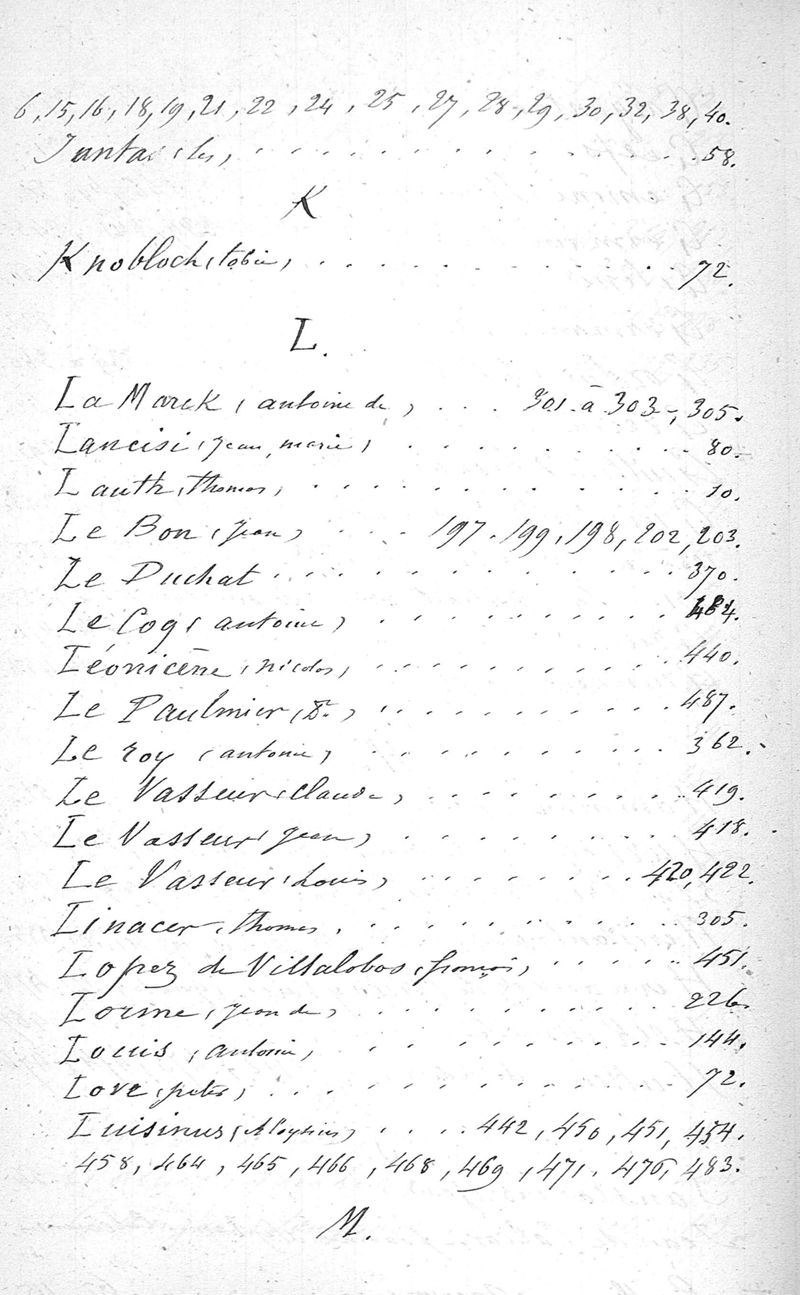 6, 15, 16, 18, 19, 21, 22, 24, 25, 27, 28, 29, 30, 32, 38, 40.
Juntas (les) . . . . . . . . . . 58.
K
Knobloch (tobie) . . . . . . . . . . 72.
L.
La Marck (antoine de) . . . 301 à 303, 305.
Lancisi (jean marie) . . . . . . . . . . 80.
Lauth (thomas) . . . . . . . . . . 10.
Le Bon (jean) . . . . 197. 199, 198, 202, 203.
Le Duchat . . . . . . . . . . 370.
Le Coq (antoine) . . . . . . . . . . 484.
Léonicène (nicolas) . . . . . . . . . . 440.
Le Paulmier (Dr.) . . . . . . . . . . 487.
Le roy (antoine) . . . . . . . . . . 362.
Le Vasseur (Claude) . . . . . . . . 419.
Le Vasseur (jean) . . . . . . . . 418.
Le Vasseur (Louis) . . . . . . . 420, 422.
Linacer (thomas) . . . . . . . . . . 305.
Lopez de Villalobos (françois) . . . . . 451.
Lorme (jean de) . . . . . . . . . . 226.
Louis (antoine) . . . . . . . . . . 144.
Love (peter) . . . . . . . . . . 72.
Luisinus (Aloysius) . . . . 442, 450, 451, 454.
458, 464, 465, 466, 468, 469, 471. 476, 483.
M.